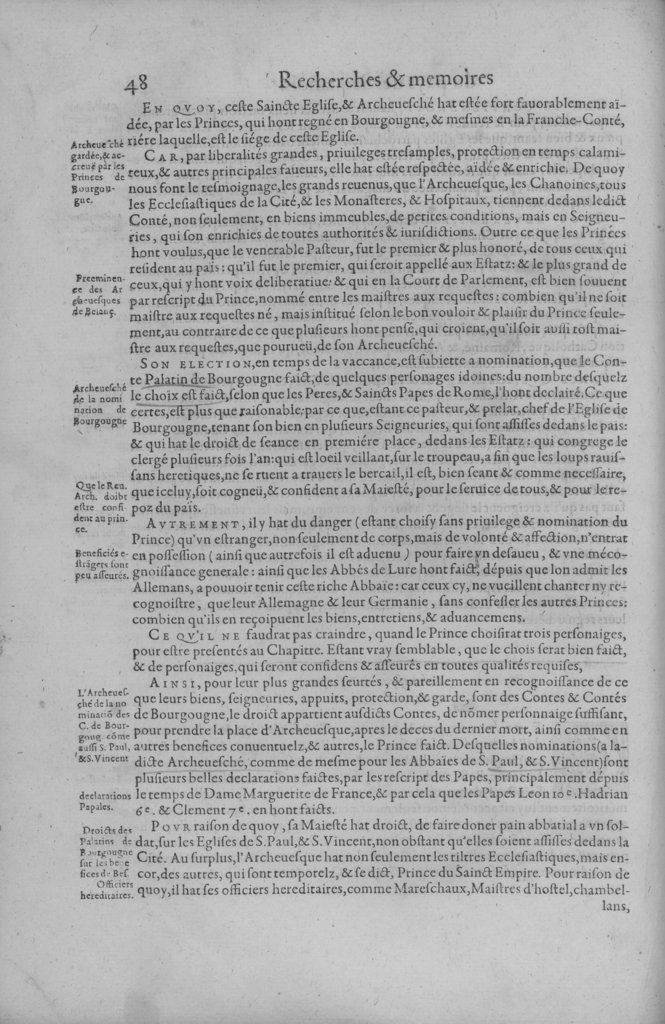 48
Recherches & memoires
EN QVOY, ceste Saincte Eglise, & Archeuesché hat estée fort fauorablement aï-
dée, par les Princes, qui hont regné en Bourgougne, & mesmes en la Franche-Conté,
riére laquelle, est le siége de ceste Eglise.
Archeueſché
gardée, & ac-
creuë par les
Princes de
Bourgou-
gne.
CAR, par liberalités grandes, priuileges tresamples, protection en temps calami-
teux, & autres principales faueurs, elle hat estée respectée, aidée & enrichie. De quoy
nous font le tesmoignage, les grands reuenus, que l'Archeuesque, les Chanoines, tous
les Ecclesiastiques de la Cité, & les Monasteres, & Hospitaux, tiennent dedans ledict
Conté, non seulement, en biens immeubles, de petites conditions, mais en Seigneu-
ries, qui son enrichies de toutes authorités & iurisdictions. Outre ce que les Princes
hont voulus, que le venerable Pasteur, fut le premier & plus honoré, de tous ceux qui
resident au païs: qu'il fut le premier, qui seroit appellé aux Estatz: & le plus grand de
Preeminen-
ce des Ar
cheuesques
de Besanç.
ceux, qui y hont voix deliberatiue: & qui en la Court de Parlement, est bien souuent
par rescript du Prince, nommé entre les maistres aux requestes: combien qu'il ne soit
maistre aux requestes né, mais institué selon le bon vouloir & plaisir du Prince seule-
ment, au contraire de ce que plusieurs hont pensé, qui croient, qu'il soit aussi tost mai-
stre aux requestes, que pourueü, de son Archeuesché.
SON ELECTION, en temps de la vaccance, est subiette a nomination, que le Con-
te Palatin de Bourgougne faict, de quelques personages idoines: du nombre desquelz
Archeuesché
de la nomi
nation de
Bourgougne
le choix est faict, selon que les Peres, & Saincts Papes de Rome, l'hont declairé. Ce que
certes, est plus que raisonable: par ce que, estant ce pasteur, & prelat, chef de l'Eglise de
Bourgougne, tenant son bien en plusieurs Seigneuries, qui sont assises dedans le païs:
& qui hat le droict de seance en premiére place, dedans les Estatz: qui congrege le
clergé plusieurs fois l'an: qui est loeil veillant, sur le troupeau, a fin que les loups rauis-
sans heretiques, ne se ruent a trauers le bercail, il est, bien seant & comme necessaire,
Que le Reu.
Arch. doibt
estre confi-
dent au prin-
ce.
que iceluy, soit cogneü, & confident a sa Maiesté, pour le seruice de tous, & pour le re-
poz du païs.
AVTREMENT, il y hat du danger (estant choisy sans priuilege & nomination du
Prince) qu'vn estranger, non seulement de corps, mais de volonté & affection, n'entrat
Beneficiés e-
strãgers sont
peu asseurés.
en possession (ainsi que autrefois il est aduenu) pour faire vn desaueu, & vne méco-
gnoissance generale: ainsi que les Abbés de Lure hont faict, dépuis que lon admit les
Allemans, a pouuoir tenir ceste riche Abbaïe: car ceux cy, ne vueillent chanter ny re-
cognoistre, que leur Allemagne & leur Germanie, sans confesser les autres Princes:
combien qu'ils en reçoipuent les biens, entretiens, & aduancemens.
CE QV'IL NE faudrat pas craindre, quand le Prince choisirat trois personaiges,
pour estre presentés au Chapitre. Estant vray semblable, que le chois serat bien faict,
& de personaiges, qui seront confidens & asseurés en toutes qualités requises,
AINSI, pour leur plus grandes seurtés, & pareillement en recognoissance de ce
L'Archeues-
ché de la no
minatiõ des
C. de Bour-
goug. cõme
aussi S. Paul,
& S. Vincent
que leurs biens, seigneuries, appuits, protection, & garde, sont des Contes & Contés
de Bourgougne, le droict appartient ausdicts Contes, de nõmer personnaige suffisant,
pour prendre la place d'Archeuesque, apres le deces du dernier mort, ainsi comme en
autres benefices conuentuelz, & autres, le Prince faict. Desquelles nominations (a la-
dicte Archeuesché, comme de mesme pour les Abbaïes de S. Paul, & S. Vincent) sont
plusieurs belles declarations faictes, par les rescript des Papes, principalement dépuis
declarations
Papales.
le temps de Dame Marguerite de France, & par cela que les Papes Leon 10e. Hadrian
6e. & Clement 7e. en hont faicts.
Droicts des
Palatins de
Bourgougne
sur les bene
fices de Bes.
POVR raison de quoy, sa Maiesté hat droict, de faire doner pain abbatial a vn sol-
dat, sur les Eglises de S. Paul, & S. Vincent, non obstant qu'elles soient assises dedans la
Cité. Au surplus, l'Archeuesque hat non seulement les tiltres Ecclesiastiques, mais en-
cor, des autres, qui sont temporelz, & se dict, Prince du Sainct Empire. Pour raison de
Officiers
hereditaires.
quoy, il hat ses officiers hereditaires, comme Mareschaux, Maistres d'hostel, chambel-
lans,